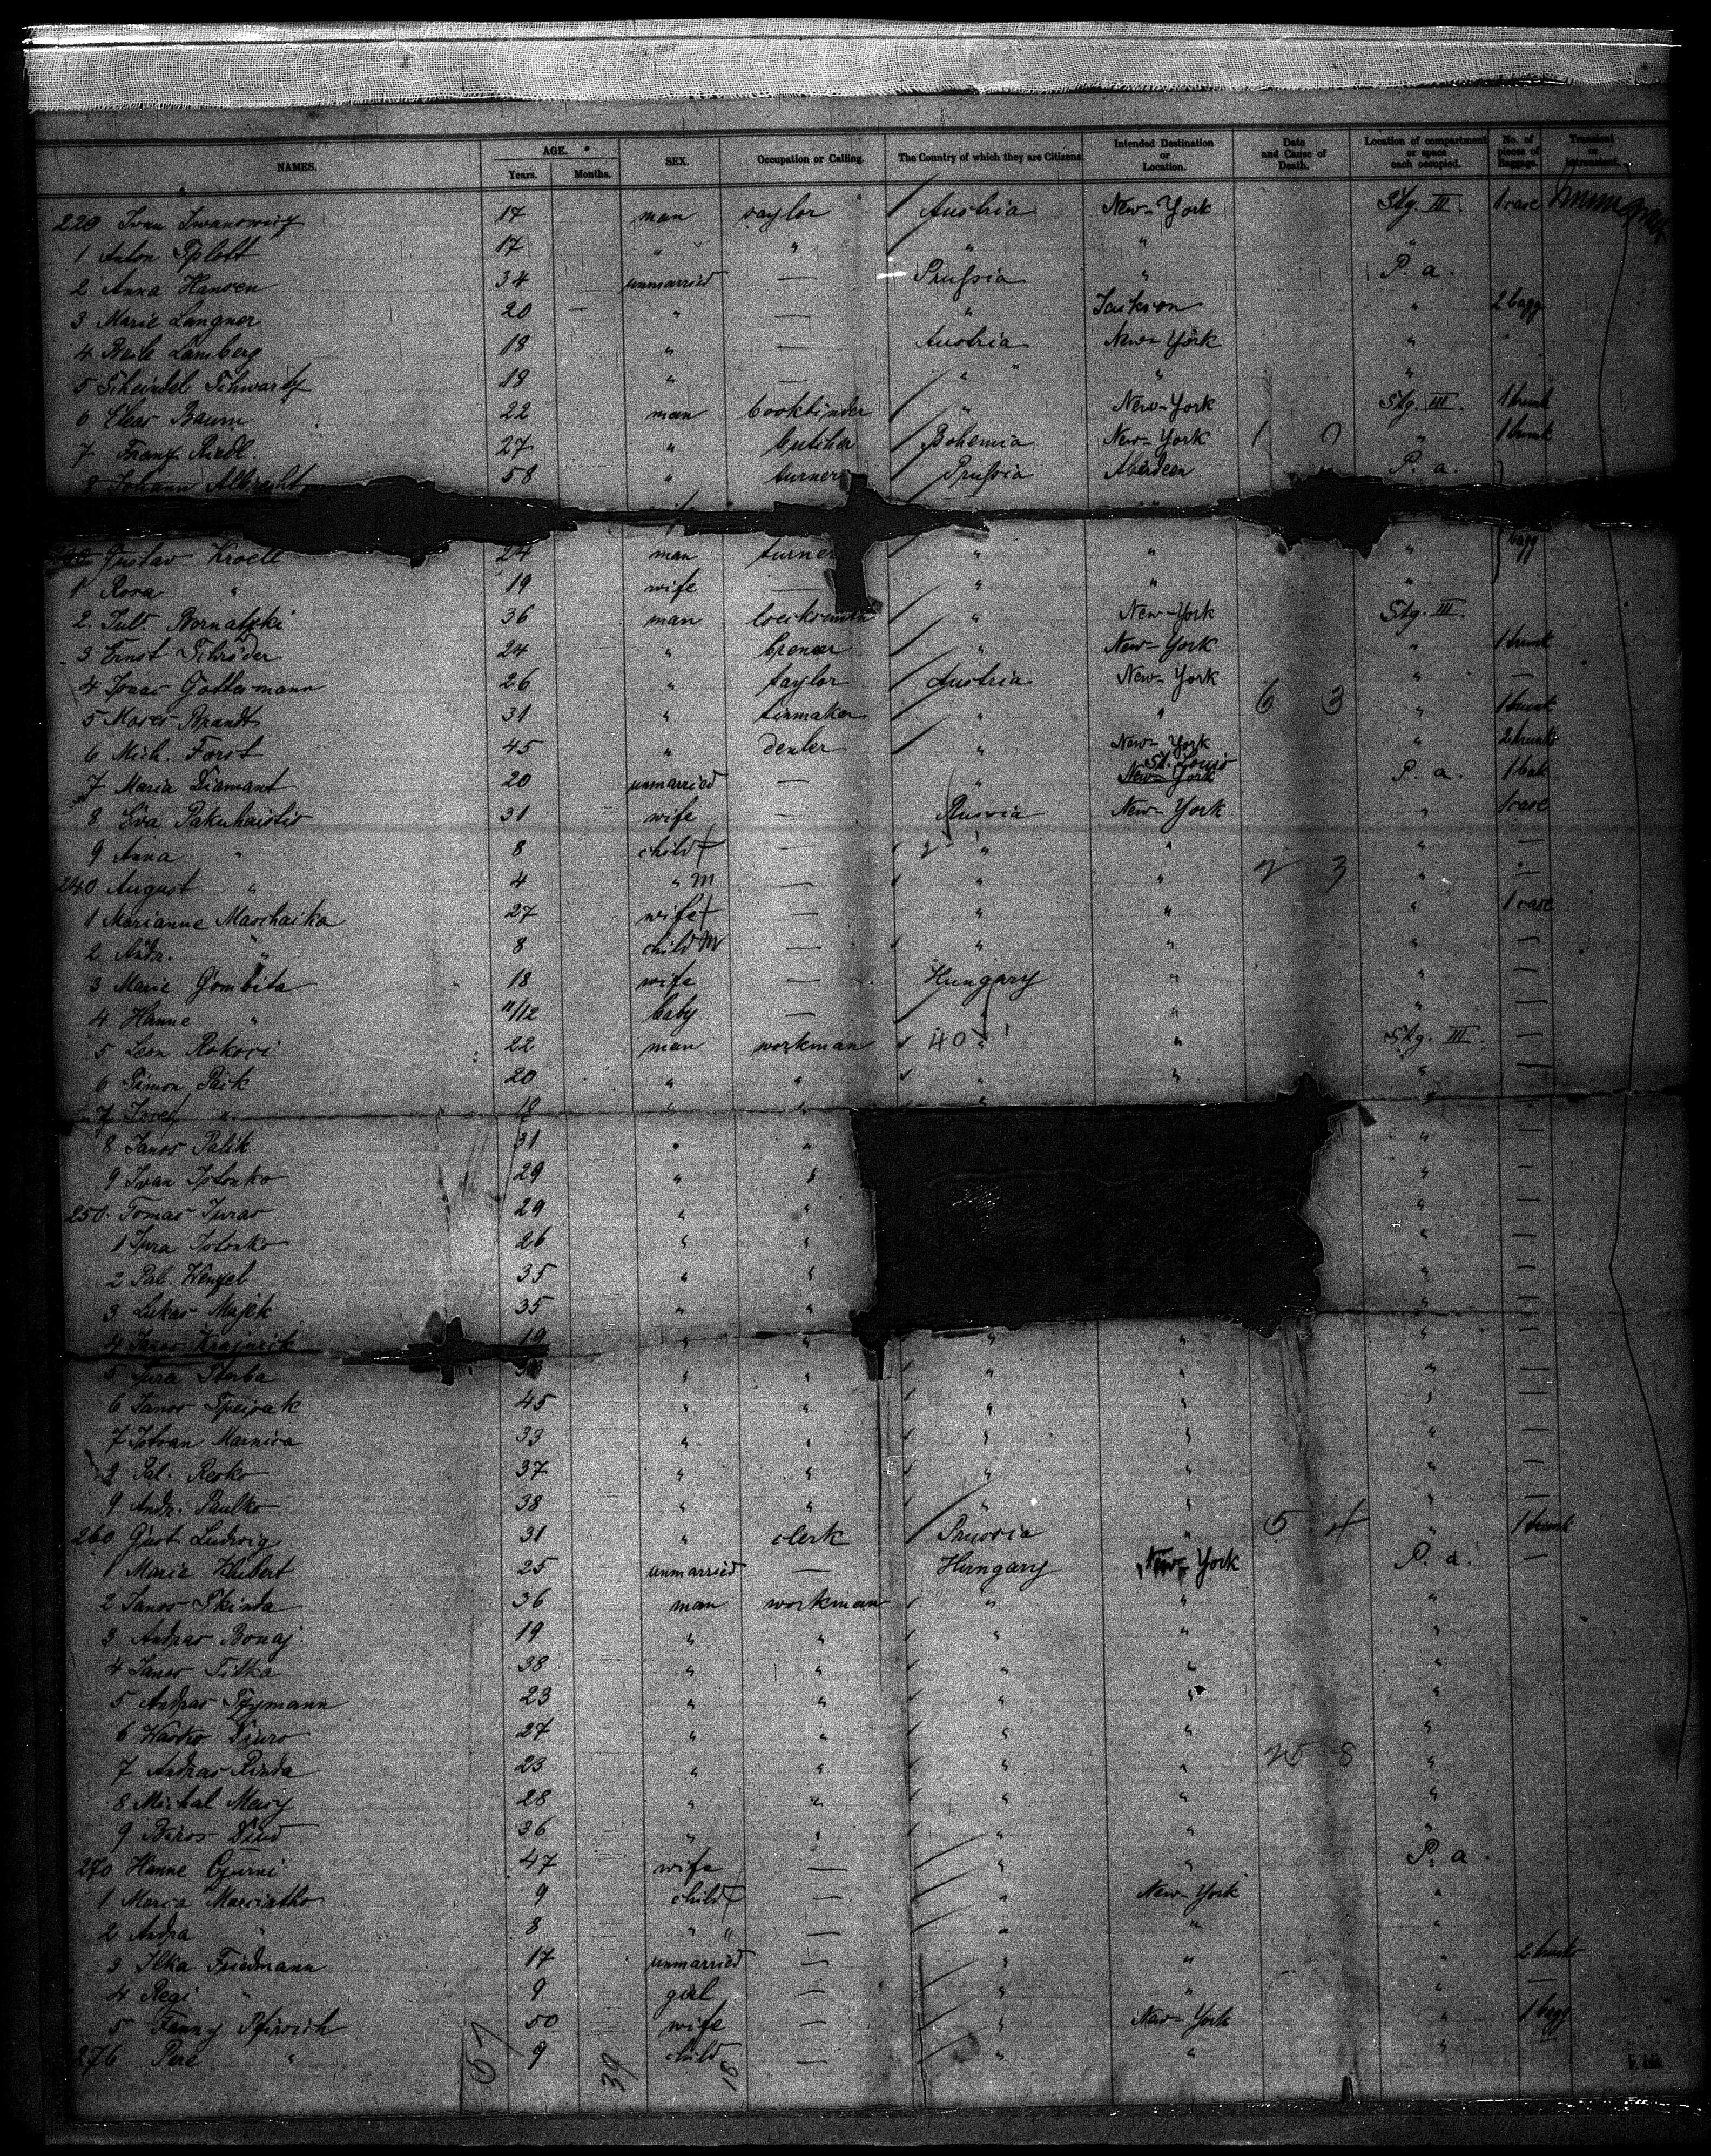 NAMES. AGE. Years. Months. SEX. Occupation or Calling. The Country of which they are Citizens. Intended Destination or Location. Date and Cause of Death. Location of compartment or space each occupied. No. of pieces of Baggage. Transient or
220 Ivan Iwanowicz 17 man taylor Austria New-York Stg. III. 1 case
1 Anton 17 " " " " "
2 Anna Hansen 34 unmarried — Prussia " P. a.
3 Marie Langner 20 " — " Jackson " 2 bagg
4 Beile Lamberg 18 " — Austria New-York "
5 Scheindel Schwartz 18 " — " " "
6 Elias Baum 22 man bookbinder " New-York Stg. III. 1 trunk
7 Franz Riedl. 27 " butcher Bohemia New-York 1 0 " 1 trunk
8 Johann Albrecht 58 " turner Prussia Aberdeen P. a.
Gustav Kroell 24 man turner " " " bagg
1 Rosa " 19 wife — " " "
2. Jul. Bornatzki 36 man locksmith " New-York Stg. III.
3 Ernst Schröder 24 " " New-York " 1 trunk
4 Isaac Gottesmann 26 " taylor Austria New-York " —
5 Moses Brandt 31 " tinmaker " " 6 3 " 1 trunk
6 Mich. Forst 45 " dealer " New-York " 2 trunks
7 Maria Diamant 20 unmarried — " New-York St. Louis P. a. 1 bak
8 Eva Pakuhaistis 31 wife — Russia New-York " 1 case
9 Anna " 8 child f — " " " —
240 August " 4 " m — " " 2 3 " —
1 Marianne Maschaika 27 wife f — " " " 1 case
2 Andr. " 8 child m — " " " —
3 Marie Gombita 18 wife — Hungary " " —
4 Hanne " 11/12 baby — " " —
5 Leon Rokoci 22 man workman 40 " " Stg. III. —
6 Simon Paik 20 " " " " " —
7 Josef " 18 " " " " —
8 Janos Palik 31 " " " —
9 Ivan Istonko 29 " " " —
250. Tomas Juras 29 " " " —
1 Jura Istonko 26 " " " —
2 Pal. Wenzel 35 " " " —
3 Lukas Majek 35 " " " —
4 Janos Krajncik 19 " " " " " —
5 Jura Sterba " " " " " —
6 Janos Speisak 45 " " " " " —
7 Istvan Marnica 33 " " " " " —
8 Pal. Resko 37 " " " " " —
9 Andr. Paulko 38 " " " " " —
260 Gust Ludwig 31 " clerk Prussia " 5 4 " 1 trunk
1 Marie Hubert 25 unmarried — Hungary New-York P. a. —
2 Janos Skinda 36 man workman " " "
3 Andras Bonaj 19 " " " " "
4 Janos Titka 38 " " " " "
5 Andras Szymann 23 " " " " "
6 Wasko Diuro 27 " " " " "
7 Andras Rinda 23 " " " " 25 8 "
8 Michal Mesy 28 " " " " "
9 Boros 36 " " " " "
270 Hanne Gyurni 47 wife — " " P. a.
1 Maria Marciatko 9 child f — " New-York "
2 Andra " 8 " " — " " "
3 Ilka Friedmann 17 unmarried — " " " 2 trunks
4 Regi " 9 girl — " " " —
5 Fanny 50 wife — " New-York " 1 bagg
276 Pere " 9 child — " " "
57 39 18